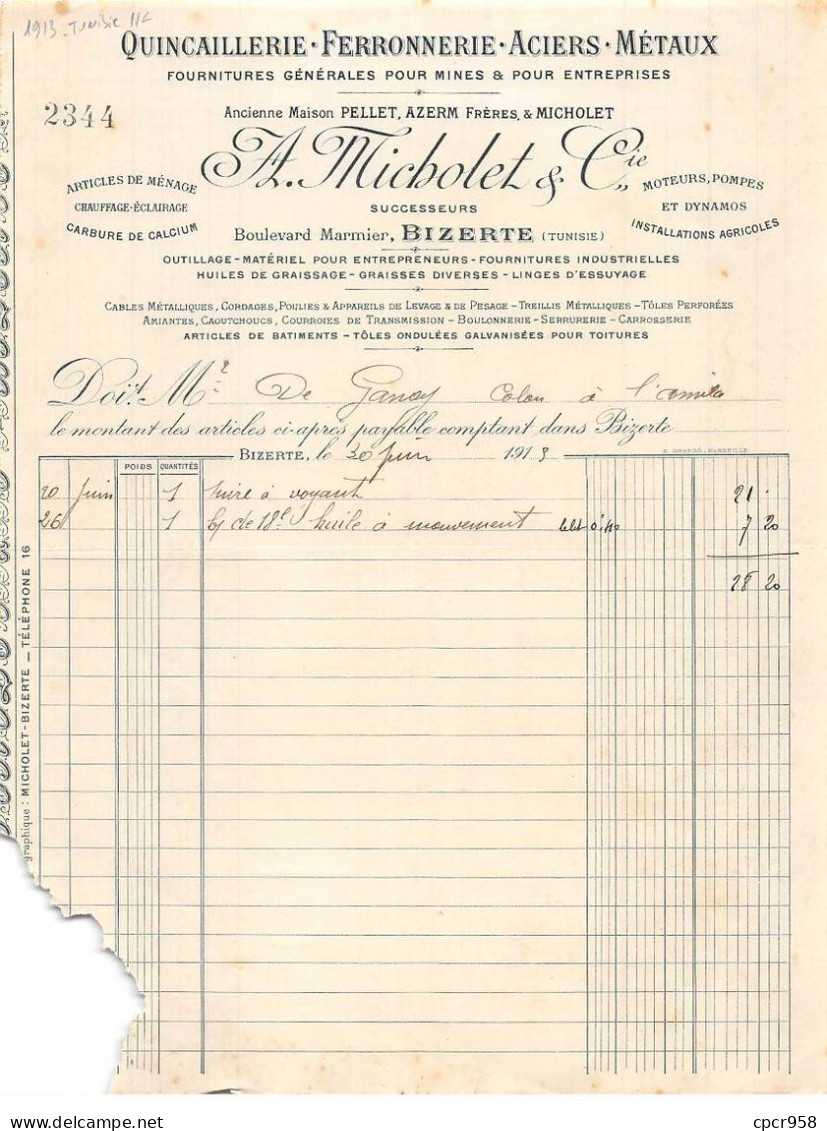 1913 - Tunisie
QUINCAILLERIE · FERRONNERIE · ACIERS · MÉTAUX
FOURNITURES GÉNÉRALES POUR MINES & POUR ENTREPRISES
2344
Ancienne Maison PELLET, AZERM FRÈRES, & MICHOLET
A. Micholet & Cie
SUCCESSEURS
ARTICLES DE MÉNAGE
CHAUFFAGE-ÉCLAIRAGE
CARBURE DE CALCIUM
MOTEURS, POMPES
ET DYNAMOS
INSTALLATIONS AGRICOLES
Boulevard Marmier, BIZERTE (TUNISIE)
OUTILLAGE - MATÉRIEL POUR ENTREPRENEURS - FOURNITURES INDUSTRIELLES
HUILES DE GRAISSAGE - GRAISSES DIVERSES - LINGES D'ESSUYAGE
CABLES MÉTALLIQUES, CORDAGES, POULIES & APPAREILS DE LEVAGE & DE PESAGE - TREILLIS MÉTALLIQUES - TÔLES PERFORÉES
AMIANTES, CAOUTCHOUCS, COURROIES DE TRANSMISSION - BOULONNERIE - SERRURERIE - CARROSSERIE
ARTICLES DE BATIMENTS - TÔLES ONDULÉES GALVANISÉES POUR TOITURES
Doit Mr De Ganay Colon à
le montant des articles ci-après payable comptant dans Bizerte
BIZERTE, le 30 Juin 1913
POIDS QUANTITÉS
20 Juin 1 à voyant 21 .
26 1 de 18 l huile à mouvement 0.40 7 20
28 20
graphique : MICHOLET-BIZERTE _ TÉLÉPHONE 16
cpcr958